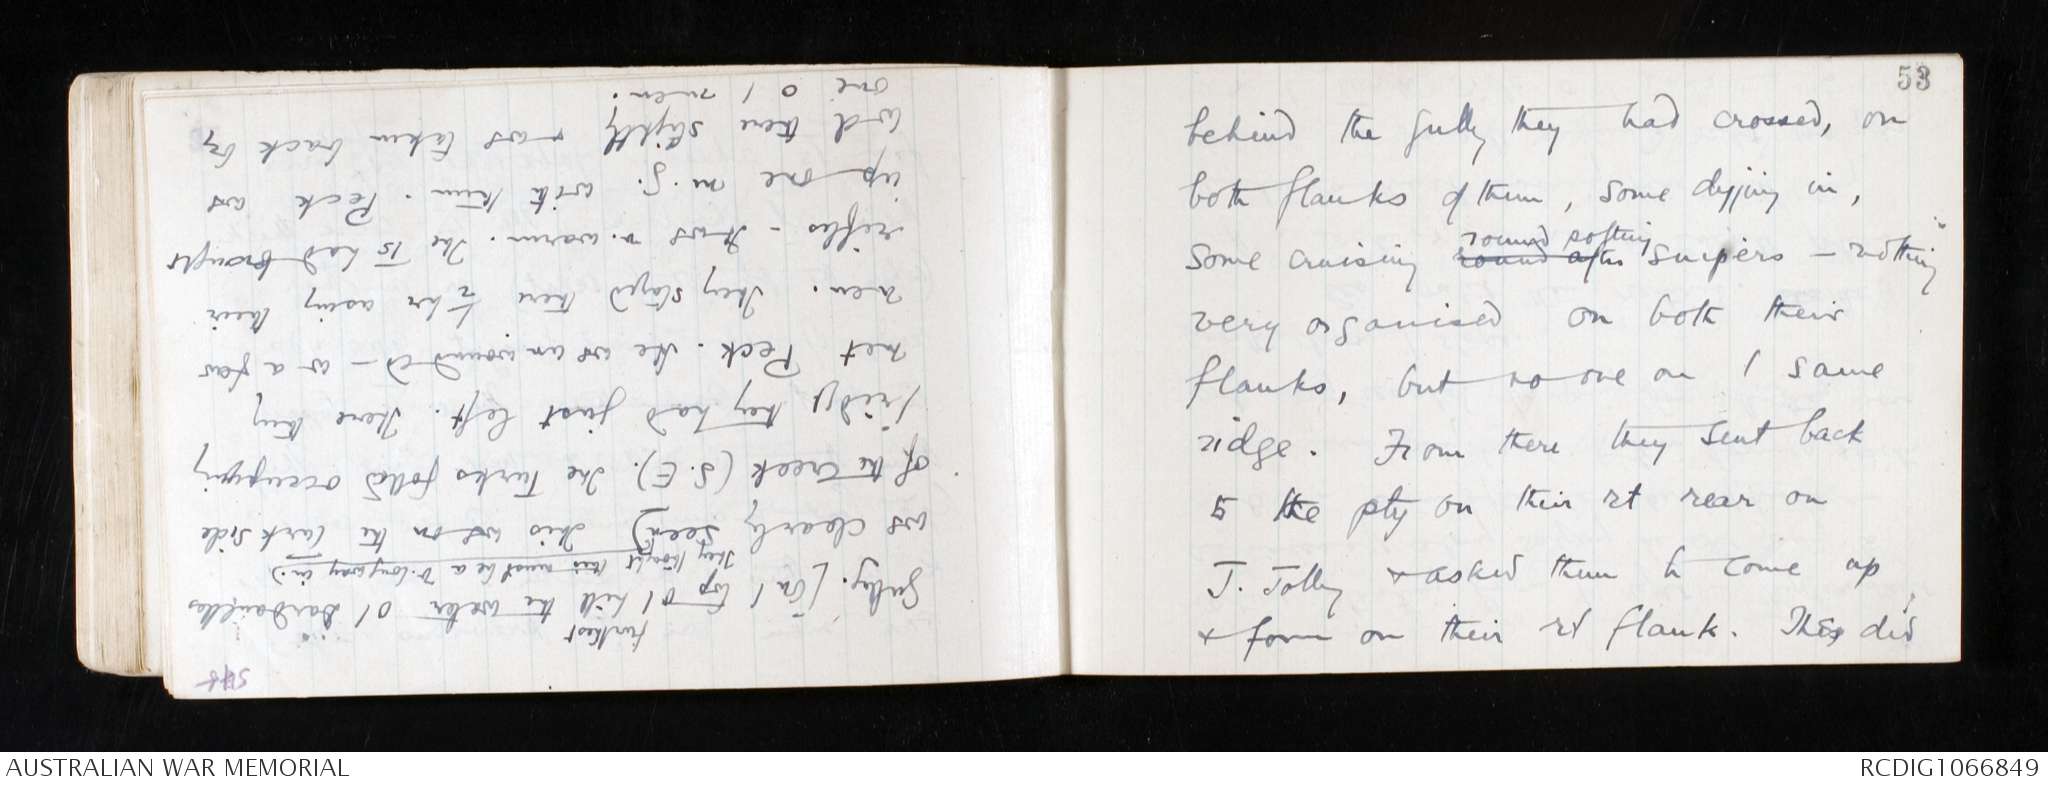 53
behind the gully they had crossed, on
both flanks of them, some digging in,
some cruising round after round potting snipers – nothing
very organised on both their
flanks, but no one on / same
ridge. From there they sent back
to the pty on their rt rear on
J. Jolly & asked them to come up
& form on their rt flank. They did
gully. [On / top o / furthest hill the water o / Dardanelles
They thought this must be a v. long way in.)
was clearly seen] This was on the Turk side
of the creek (S.E.). The Turks folld occupying
/ ridge they had just left. Here they
met Peck. He was unwounded – w a few
men. They stayed there ½ hr using their
rifles – It was v. warm. The 15 had brought
up one m.g. with them. Peck was
wd there slightly & was taken back by
one o / men.
AUSTRALIAN WAR MEMORIAL
RCDIG1066849